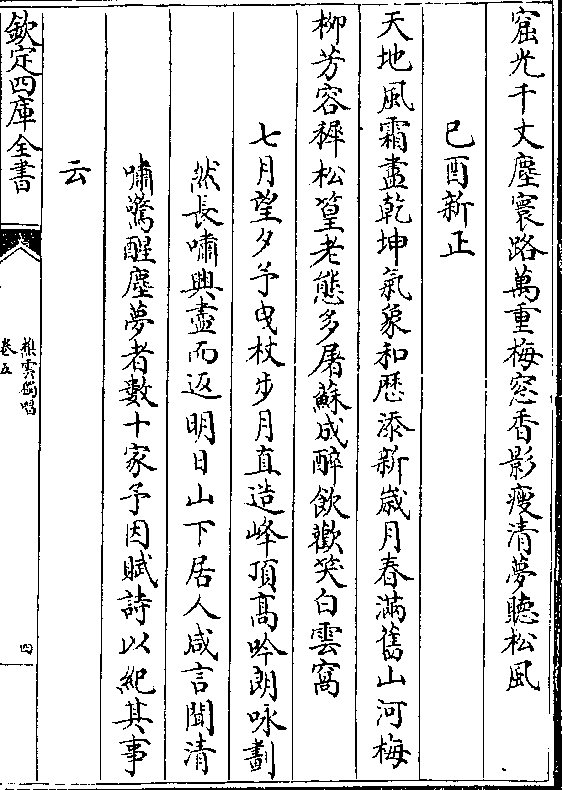 窟光千丈塵寰路萬重梅窓香影瘦清夢聽松風
己酉新正
天地風霜盡乾坤氣象和歴添新歳月春滿舊山河梅
柳芳容穉松篁老態多屠蘇成醉飲歡笑白雲窩
七月望夕予曵杖步月直造峰頂髙吟朗咏劃
然長嘯興盡而返明日山下居人咸言聞清
嘯驚醒塵夢者數十家予因賦詩以紀其事
云
欽定四庫全書
樵雲獨唱
卷五
四